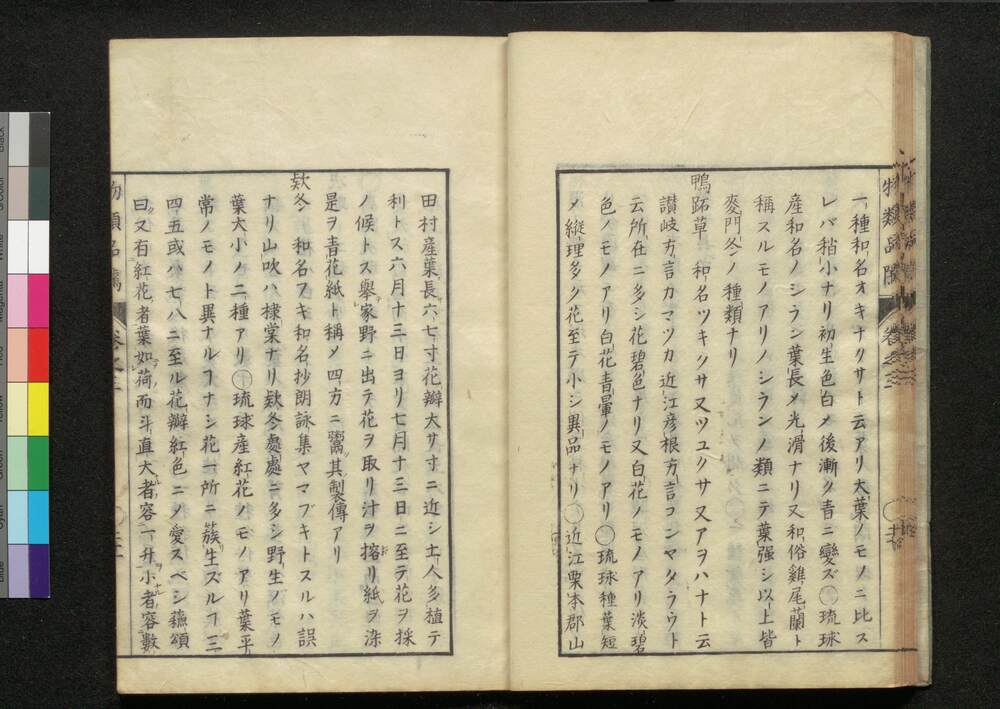 一種和名オキナクサト云アリ大葉ノモノニ比ス
レバ稍小ナリ初生色白〆後漸ク青ニ變ズ○琉球
産和名ノシラン葉長〆光滑ナリ又和俗雞尾蘭ト
稱スルモノアリノシランノ類ニテ葉强シ以上皆
麥門冬ノ種類ナリ
鴨跖草 和名ツキクサ又ツユクサ又アヲハナト云
讃岐方言カマツカ近江彦根方言コンヤタラウト
云所在ニ多シ花碧色ナリ又白花ノモノアリ淡碧
色ノモノアリ白花青暈ノモノアリ○琉球種葉短
〆縱理多ク花至テ小シ異品ナリ○近江栗本郡山
田村産葉長六七寸花瓣大サ寸ニ近シ土人多植テ
利トス六月十三日ヨリ七月十三日ニ至テ花ヲ採
ノ候トス擧家野ニ出テ花ヲ取リ汁ヲ搾リ紙ヲ染
是ヲ青花紙ト稱〆四方ニ鬻其製傳アリ
欵冬 和名フキ和名抄朗詠集ヤマブキトスルハ誤
ナリ山吹ハ棣棠ナリ欵冬處處ニ多シ野生ノモノ
葉大小ノ二種アリ○琉球産紅花ノモノアリ葉平
常ノモノト異ナルヿナシ花一所ニ簇生ズルヿ三
四五或ハ七八ニ至ル花瓣紅色ニ〆愛スベシ蘓頌
曰又有紅花者葉如荷而斗直大者容一升小者容數
物類品隲 卷之三